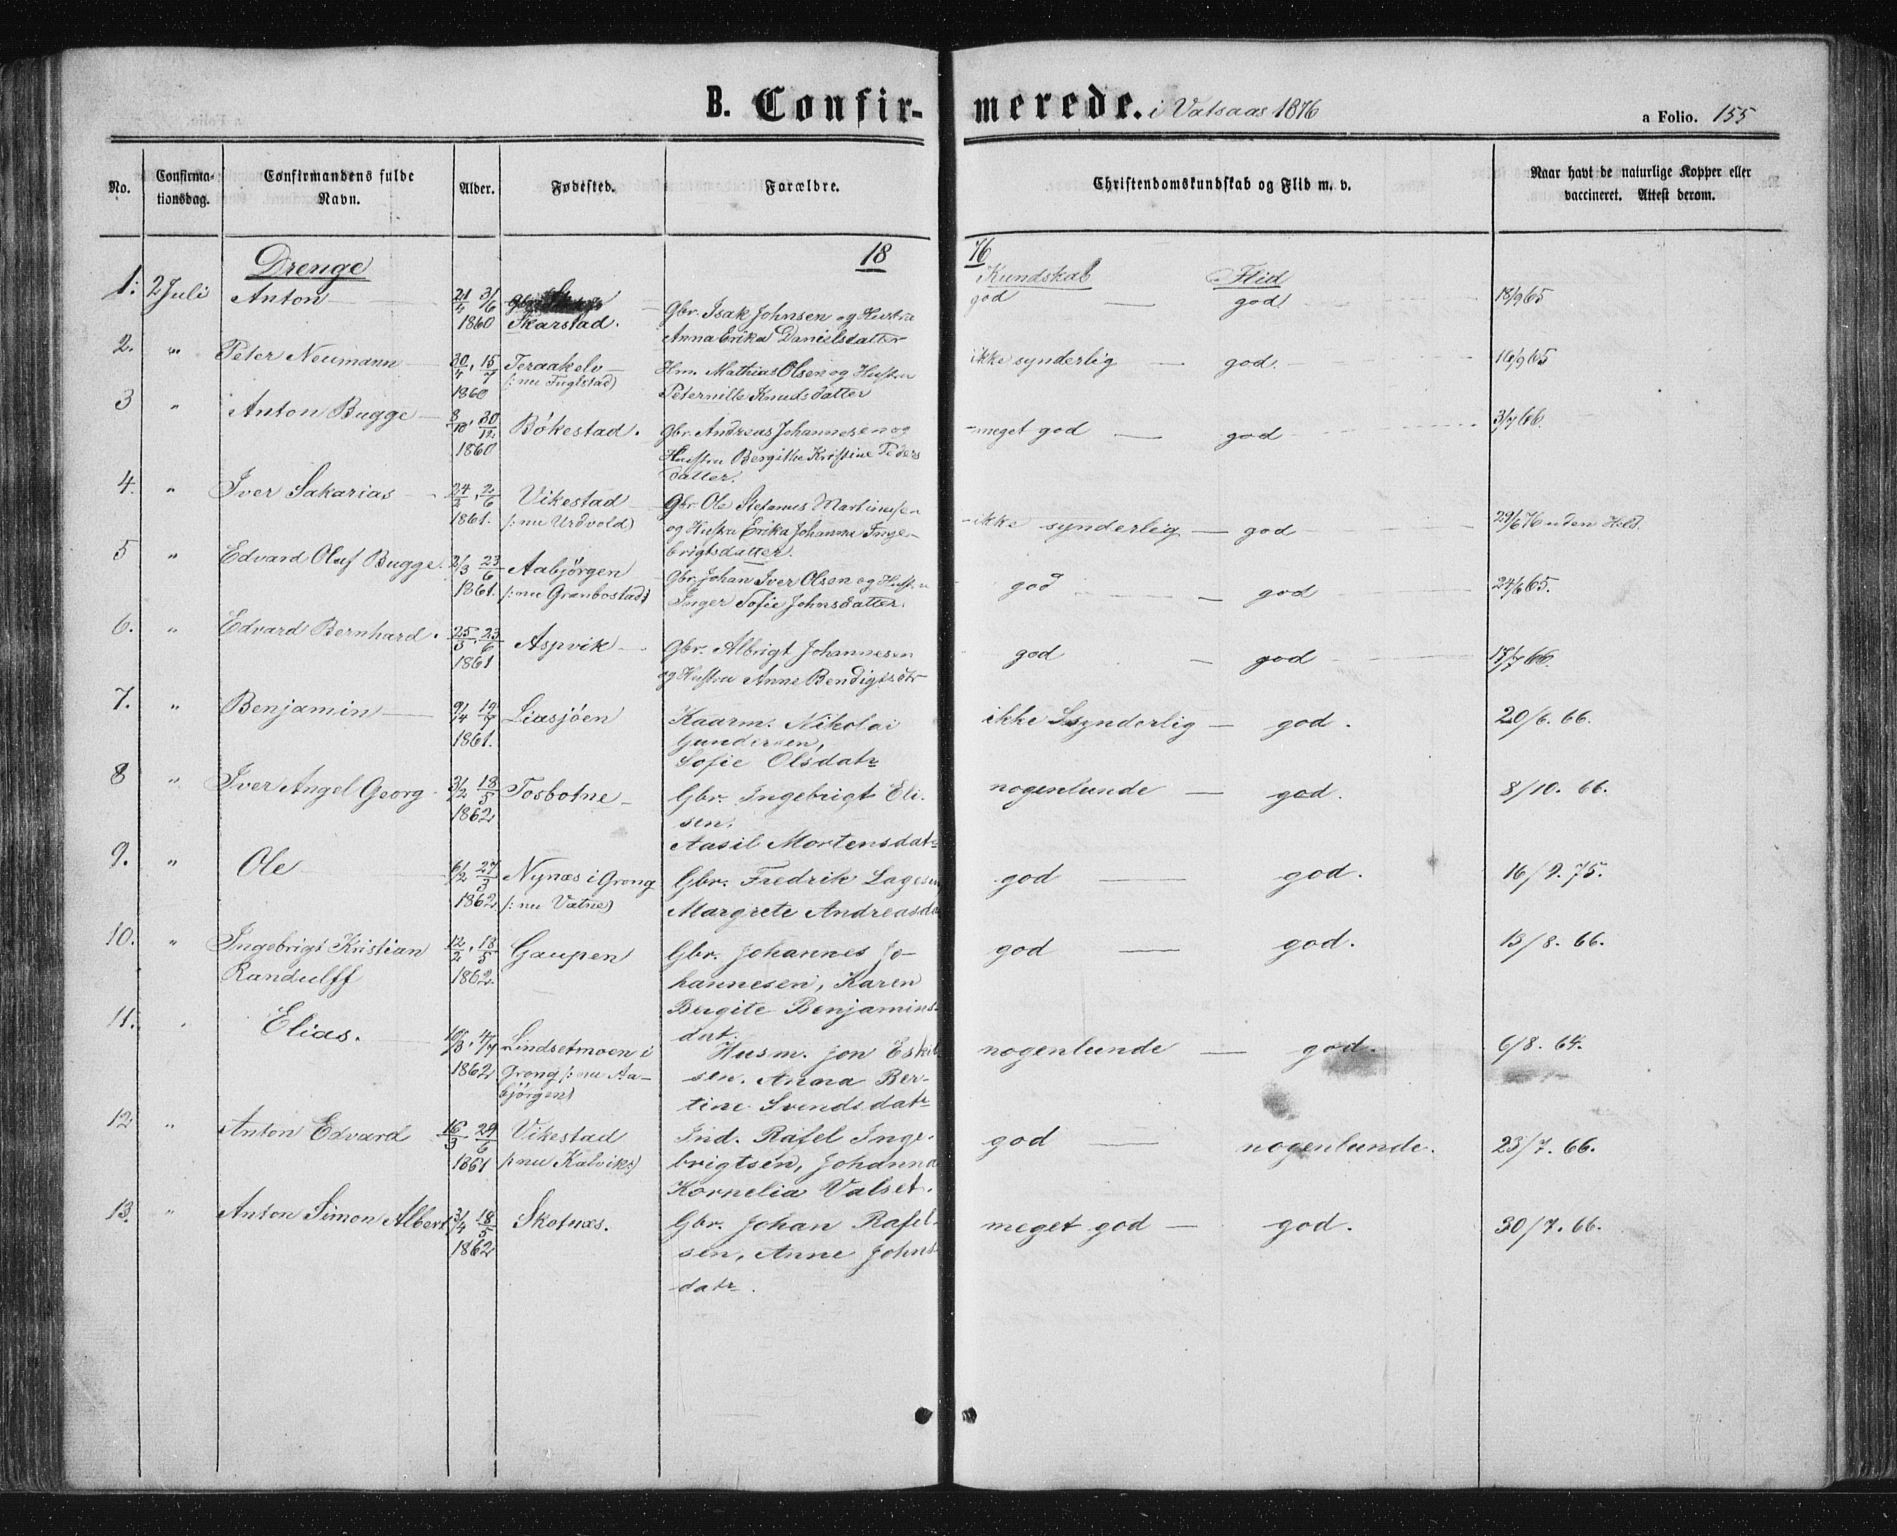 B. Confirmerede. i Vatsaas 1876
a Folio. 155
No.
Confirmationsdag.
Confirmandens fulde Navn.
Alder.
Fødested.
Forældre.
Christendomskundskab og Flid m. v.
Naar havt de naturlige Kopper eller vaccineret. Attest derom.
Drenge
18 76
Kundskab Flid
1. 2 Juli Anton 21/4 3/6 1860 Skarstad. Gbr. Isak Johnsen og Hustru god — god 18/9 65
Anna Erika Danielsdatter
2. " Peter Neumann 30/4, 15/7 1860 Teraakelv Hm. Mathias Olsen og Hustru ikke synderlig — god. 16/9 65
(: nu Fuglstad) Peternille Knudsdatter
3 " Anton Bugge 8/10, 30/12 1860 Bökestad. Gbr. Andreas Johannesen og meget god — god 3/7 66.
Hustru Bergithe Kristine Peders
datter.
4. " Iver Sakarias 24/2, 2/6 1861. Vikestad Gbr. Ole Stefanus Martinusen ikke synderlig — god 29/6 76 uden Hold.
(: nu Urdvold) og Hustru Erika Johanna Inge-
brigtsdatter.
5 " Edvard Oluf Bugge. 2/3 23/6 1861. Aabjörgen Gbr. Johan Iver Olsen og Hustru god — god 24/6 65.
(: nu Grønbostad) Inger Sofie Johnsdatter.
6. " Edvard Bernhard. 25/3, 23/6 1861 Aspvik Gbr. Albrigt Johannesen god — god 17/7 66.
og Hustru Anne Bendigtsdtr
7. " Benjamin 9/4 14/7 1861. Liasjöen Kaarm. Nikolai ikke synderlig — god. 20/6. 66.
Gundersen,
Sofie Olsdatr
8 " Iver Angel Georg 3/2 18/5 1862 Tosbotne Gbr. Ingebrigt Eli- nogenlunde — god. 8/10. 66.
sen.
Aasil Mortensdatr
9. " Ole 6/2 27/3 1862 Nynæs i Grong Gbr. Fredrik Lagesen god — god. 16/9. 75.
(: nu Vatne) Margrete Andreasda
10. " Ingebrigt Kristian 12/2, 18/5 1862. Gaupen Gbr. Johannes Jo- god — god. 13/8. 66.
Randulff hannesen, Karen
Birgite Benjamins-
dat.
11. " Elias. 10/3, 4/7 1862 Lindsetmoen i Husm. Jon Eskil- nogenlunde — god. 6/8. 64.
Grong (: nu Aa- sen. Anna Ber-
björgen) tine Svendsdatr
12 " Anton Edvard 16/3 24/6 1861 Vikestad Ind. Rafel Inge- god — nogenlunde. 23/7. 66.
(: nu Kalvik:) brigtsen, Johanna
Kornelia Valset.
13. " Anton Simon Albert 3/4 18/5 1862 Skotnæs. Gbr. Johan Rafel- meget god — god. 30/7. 66.
sen, Anne Johns-
datr.